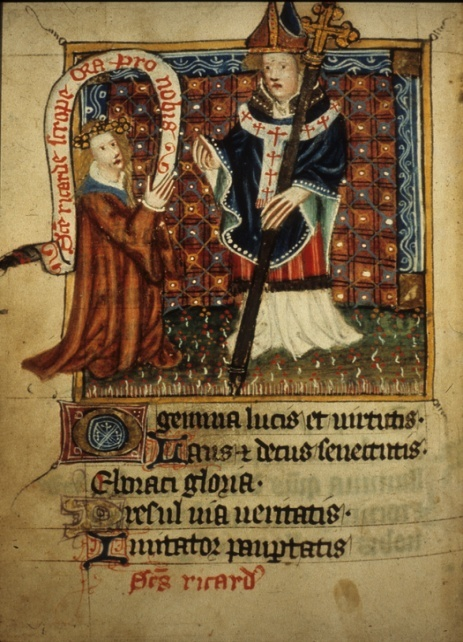 Sc̄e ricarde scrope Ora pro nobis
O gemma lucis et uirtutis·
Laus ⁊ decus senectutis·
Eboraci gloria·
Presul uia ueritatis·
Imitator paup̄tatis
Sc̄s ricard'